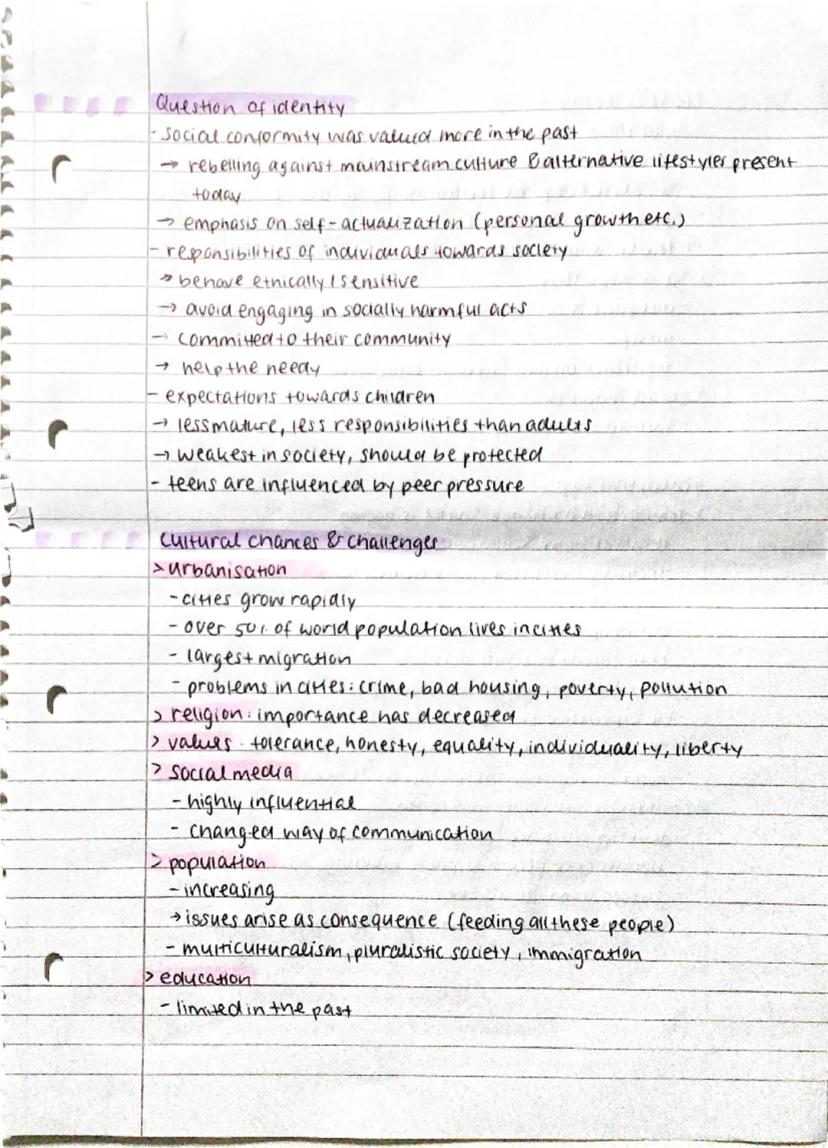 Question of identity
- social conformity was valued more in the past
→ rebelling against mainstream culture & alternative lifestyles present
today
→ emphasis on self-actualization (personal growth etc.)
- responsibilities of individuals towards society
→ behave ethically / sensitive
→ avoid engaging in socially harmful acts
- committed to their community
→ help the needy
- expectations towards children
→ less mature, less responsibilities than adults
→ weakest in society, should be protected
- teens are influenced by peer pressure
Cultural chances & challenges
> urbanisation
- cities grow rapidly
- over 50% of world population lives in cities
- largest migration
- problems in cities: crime, bad housing, poverty, pollution
> religion: importance has decreased
> values: tolerance, honesty, equality, individuality, liberty
> social media
- highly influential
- changed way of communication
> population
- increasing
→ issues arise as consequence (feeding all these people)
- multiculturalism, pluralistic society, immigration
> education
- limited in the past